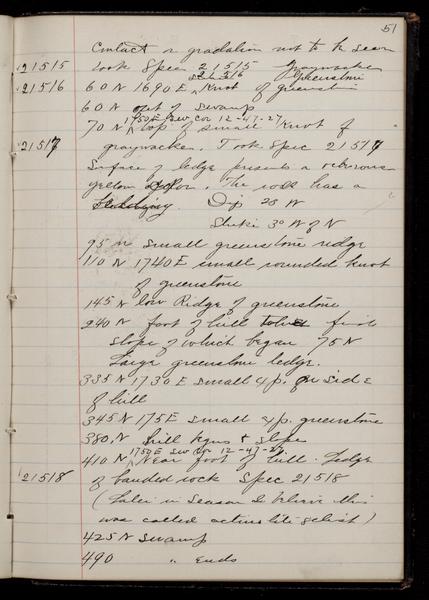 51
Contact or gradation not to be seen
21515 took Spec. 21515 graywacke
21516 21516 greenstone
60 N 1690 E, Knot of greenstone
60 N out of swamp
1750 E Sw. cor 12-47-27
70 N top of small Knot of
21517 graywacke. Took Spec 21517
Surface of ledge presents a
yellow color. The rock has a
Dip 28 W
Strike 3° W of N
95 N small greenstone ridge
110 N 1740 E small rounded knot
of greenstone
145 N low Ridge of greenstone
240 N foot of hill
slope of which began 75 N
Large greenstone ledge.
335 N 1730 E small exp. on side
of hill
345 N 175 E small exp. greenstone
380 N hill begins to slope
1750 E Sw cor 12-47-27
410 N Near foot of hill. Ledge
21518 of banded rock Spec 21518
(Later in season I believe this
was called actinolite schist)
425 N swamp
490 " ends